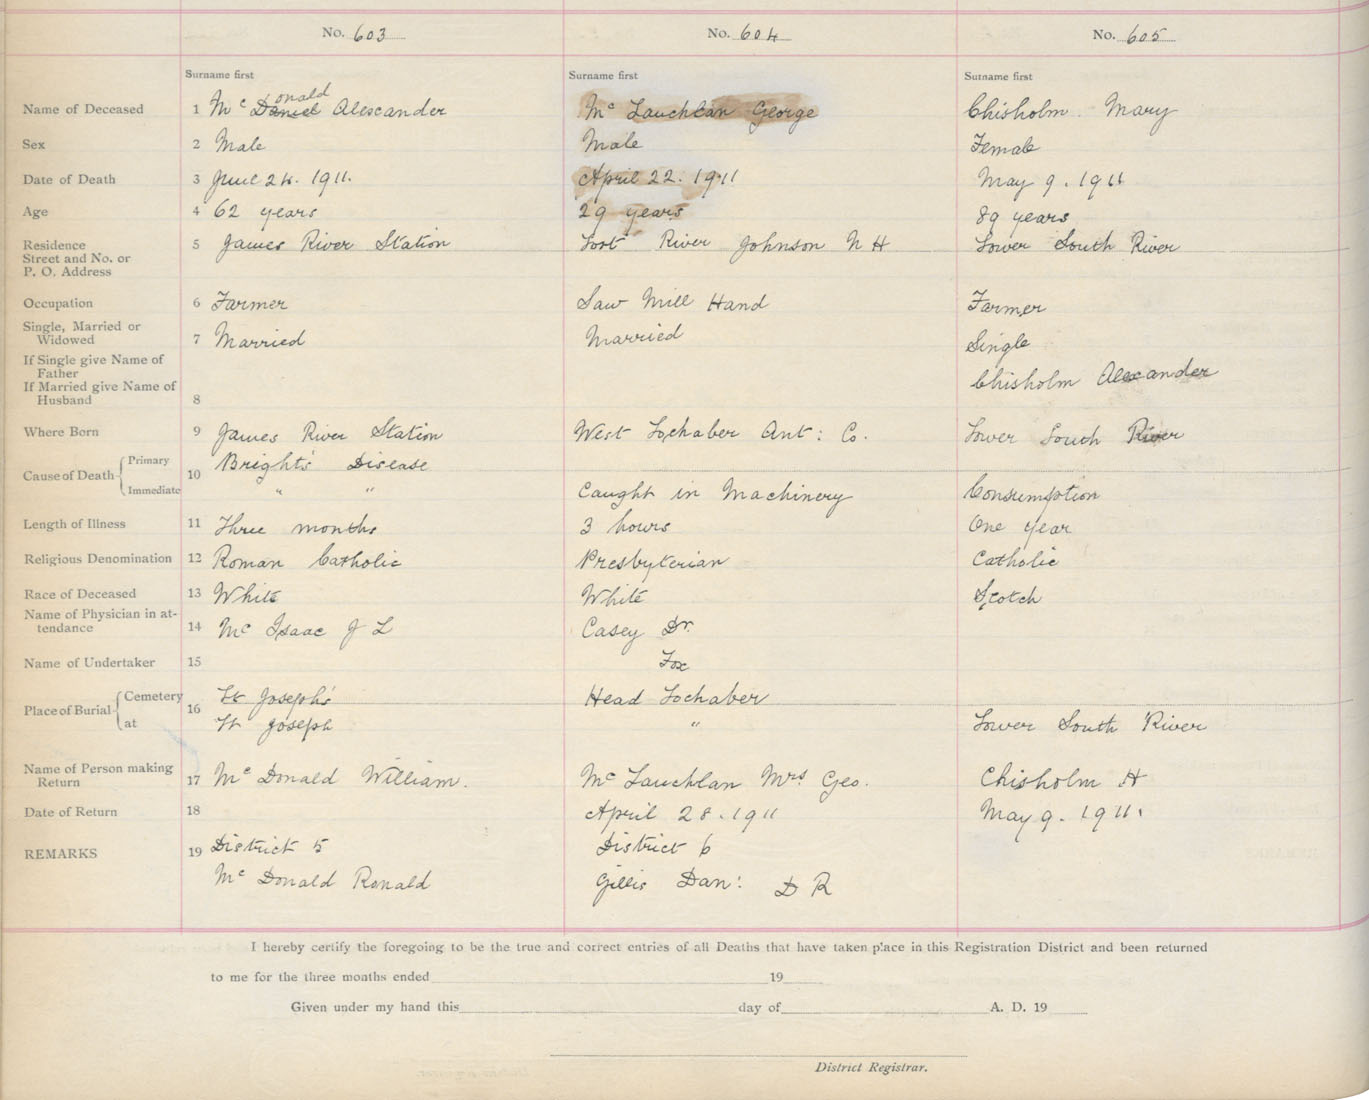 No. 603 No. 604 No. 605
Surname first Surname first Surname first
Name of Deceased 1 Mc Donald Alexander Mc Lauchlan George Chisholm Mary
Sex 2 Male Male Female
Date of Death 3 June 24. 1911. April 22. 1911 May 9. 1911
Age 4 62 years 29 years 89 years
Residence 5 James River Station Fort River Johnson N H Lower South River
Street and No. or
P. O. Address
Occupation 6 Farmer Saw Mill Hand Farmer
Single, Married or
Widowed 7 Married Married Single
If Single give Name of
Father Chisholm Alexander
If Married give Name of
Husband 8
Where Born 9 James River Station West Lochaber Ant: Co. Lower South River
Cause of Death Primary 10 Bright's Disease
Immediate " " Caught in Machinery Consumption
Length of Illness 11 Three months 3 hours One year
Religious Denomination 12 Roman Catholic Presbyterian Catholic
Race of Deceased 13 White White Scotch
Name of Physician in at-
tendance 14 Mc Isaac J L Casey Dr.
Name of Undertaker 15 Fox
Place of Burial Cemetery 16 St Joseph's Head Lochaber
at St Joseph " Lower South River
Name of Person making
Return 17 Mc Donald William. Mc Lauchlan Mrs. Geo. Chisholm H
Date of Return 18 April 28. 1911 May 9. 1911.
REMARKS 19 District 5 District 6
Mc Donald Ronald Gillis Dan: D R
I hereby certify the foregoing to be the true and correct entries of all Deaths that have taken place in this Registration District and been returned
to me for the three months ended 19
Given under my hand this day of A. D. 19
District Registrar.